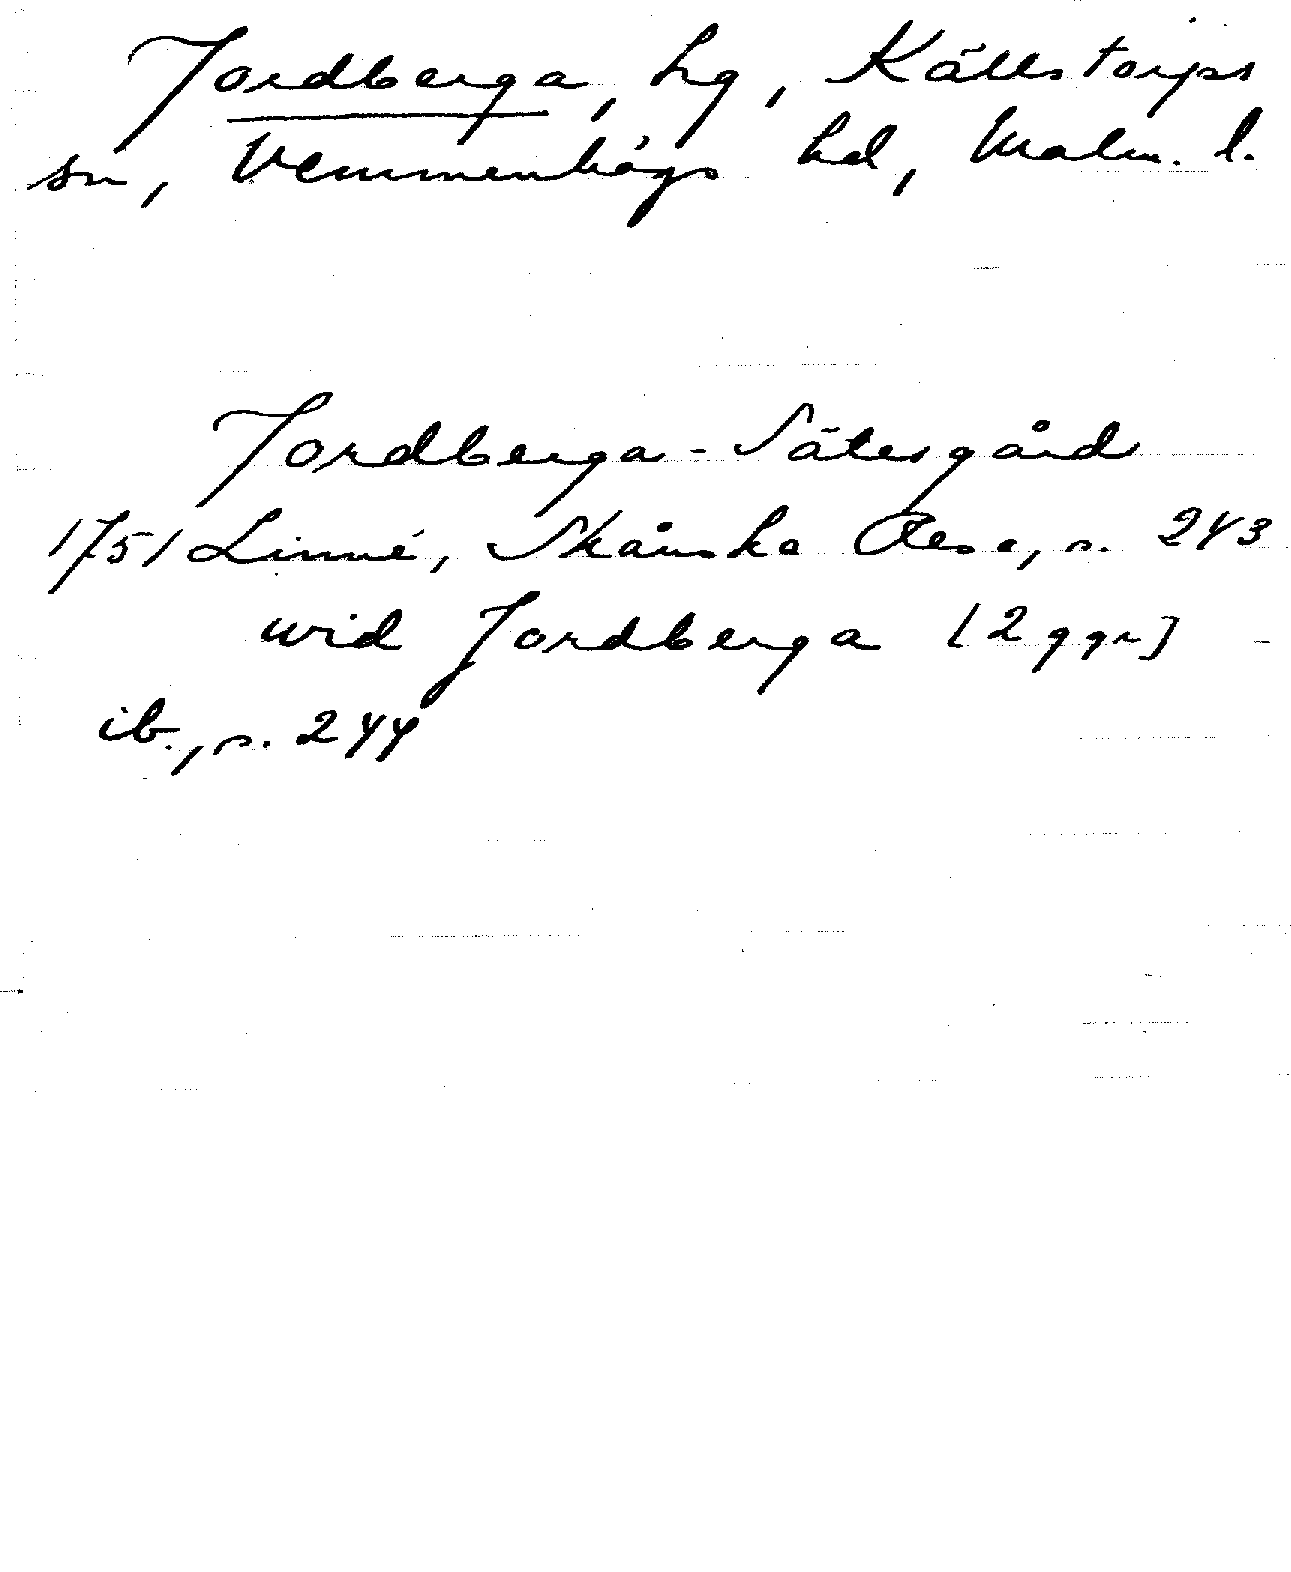 Jordberga, hg, Källstorps
sn, Vemmenhögs hd, Malm. l.
Jordberga-Sätesgård
1751 Linné, Skånska Resa, s. 243
wid Jordberga [2 ggr]
ib., s. 244